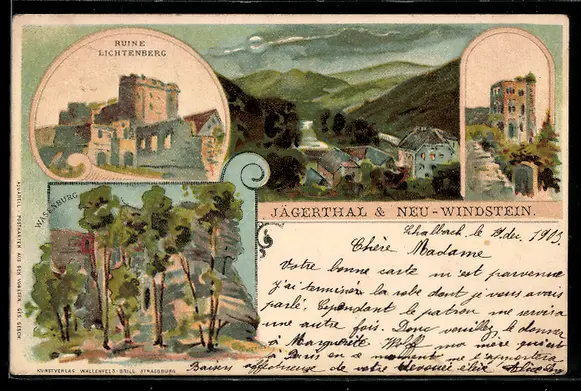 RUINE
LICHTENBERG
WASENBURG
JÄGERTHAL & NEU-WINDSTEIN.
Schalbach, le déc. 1903.
Chère Madame
Votre bonne carte m'est parvenue
j'ai terminée la robe dont je vous avais
parlé. Cependant le patron me servira
une autre fois. Donc veuillez le donner
à Marguerite Wolff ma
à Paris en ce moment me l'apportera
Baisers affectueux de votre dévouée
AQUARELL-POSTKARTEN AUS DEN VOGESEN. GES. GESCH.
KUNSTVERLAG WALLENFELS-BRILL STRASSBURG.